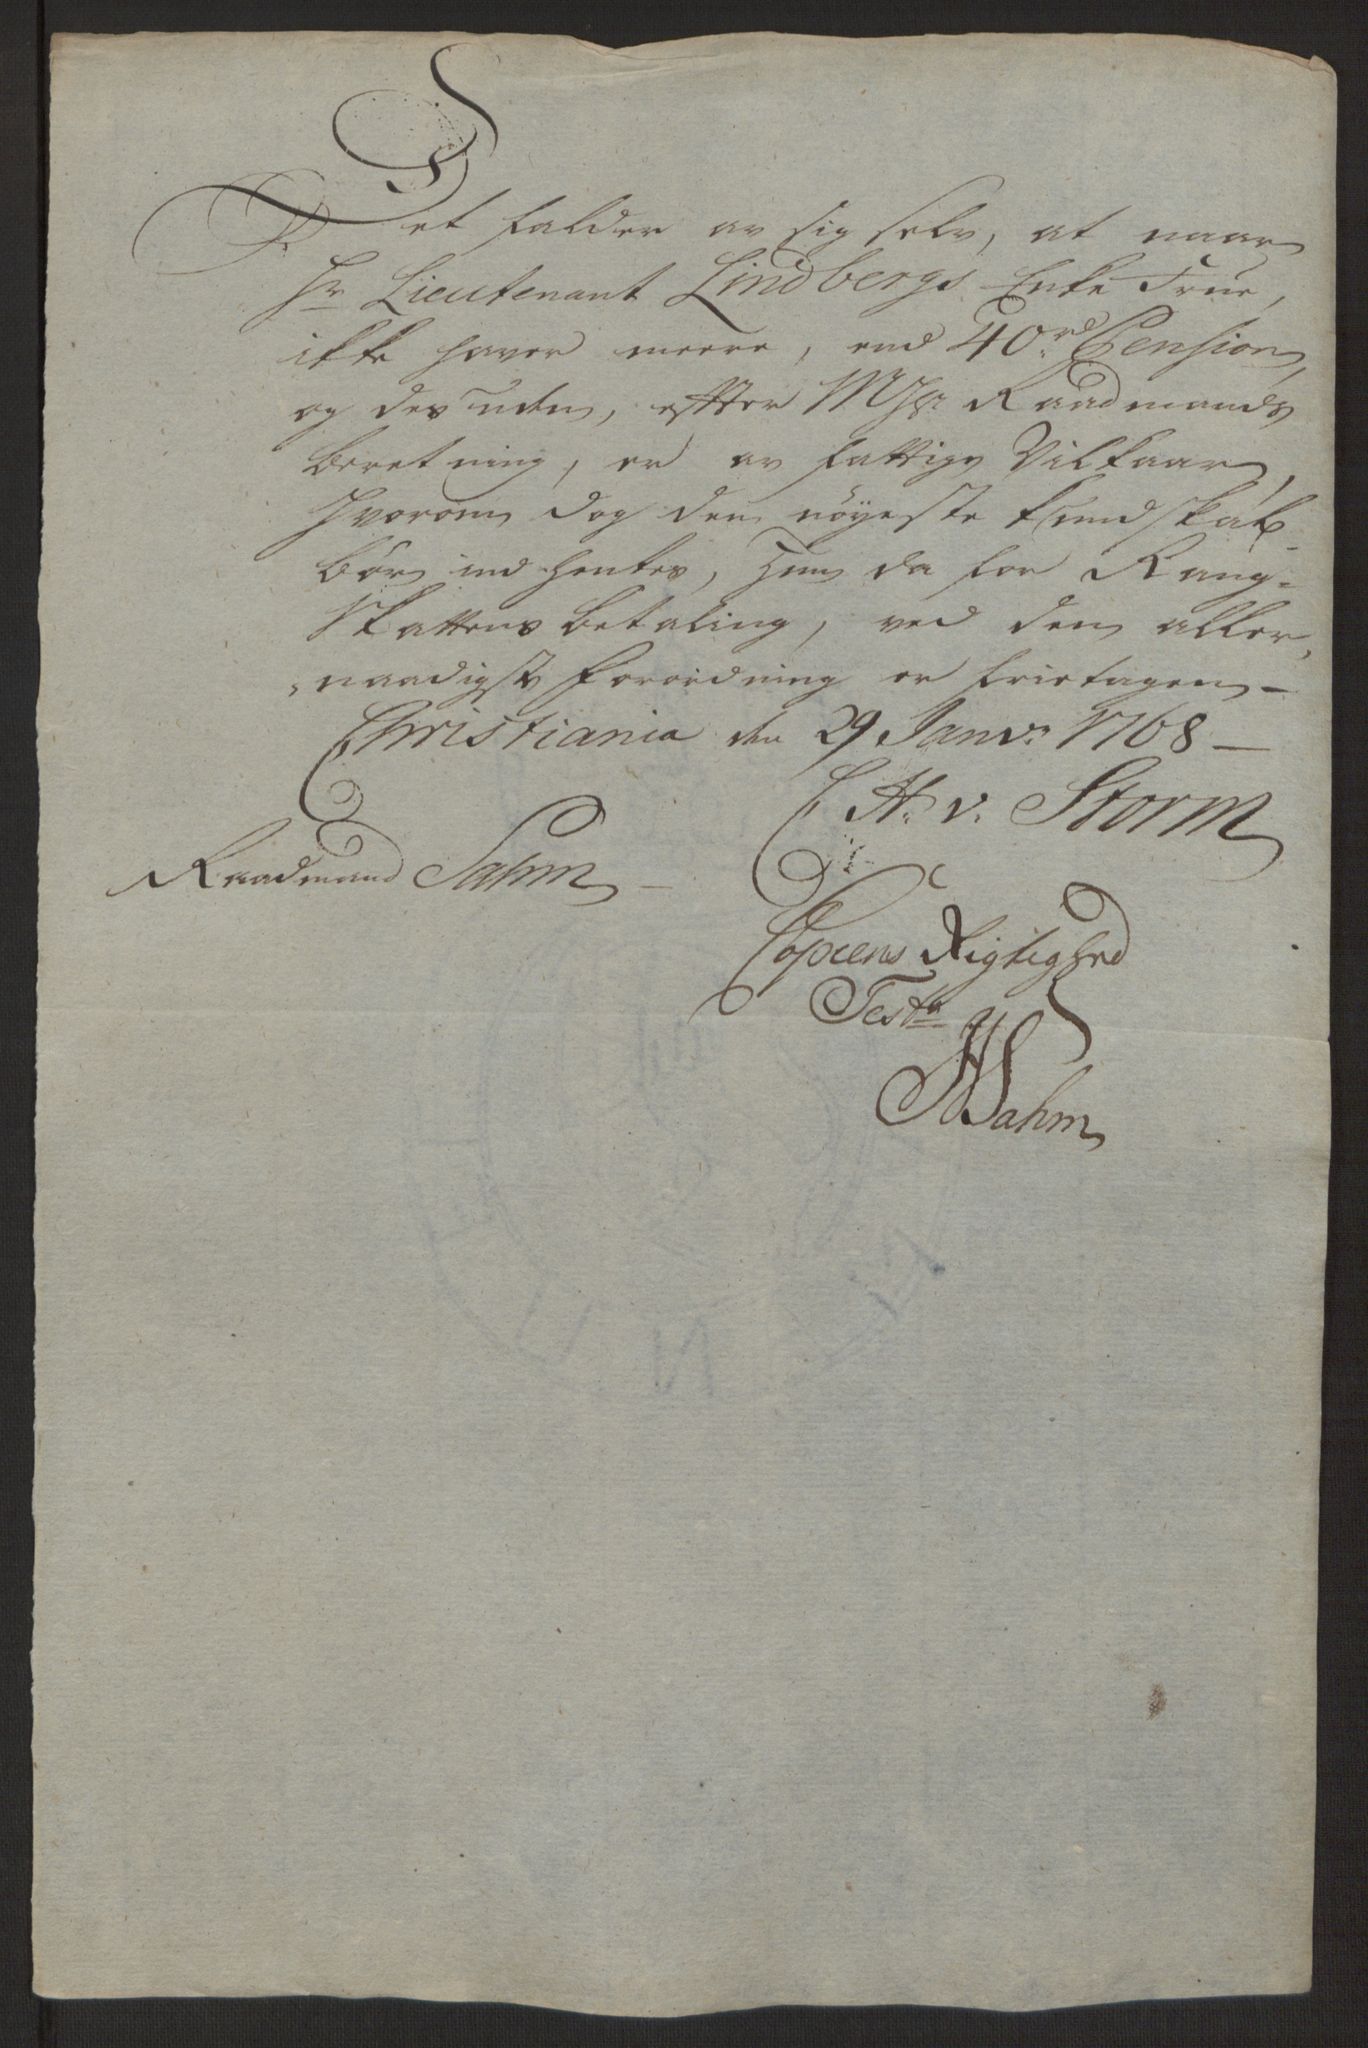 Det falder av sig selv, at naar
Hr Lieutenant Lindbergs Enke Frue,
ikke haver meere, end 40 rd Pension,
og desuden, efter Mr Raadmands
beretning, er av fattige Vilkaar,
hvorom dog den nöyeste kundskab
bör indhentes, Hun da for Rang-
Skattens betaling, ved den aller,
naadigste forordning er frietagen –
Christiania den 29 Janvr 1768 –
C H. v. Storm
Raadmand Sahm –
Copiens Rigtighed
Test
H Sahm